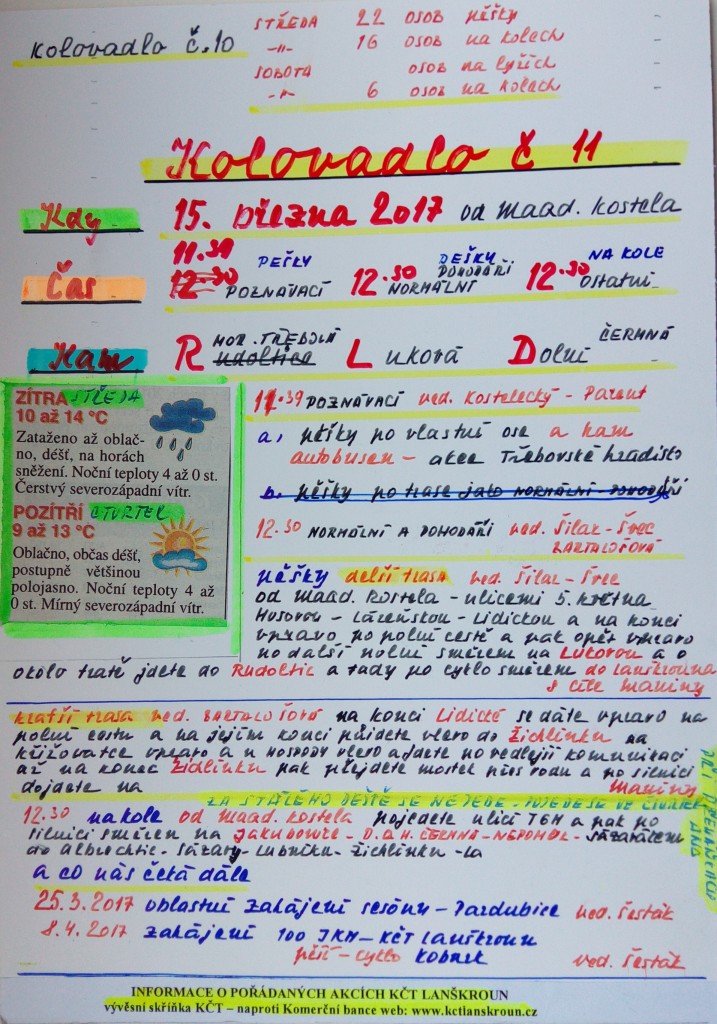 Kolovadlo č.10
STŘEDA 22 OSOB pěšky
-"- 16 OSOB na kolech
SOBOTA OSOB na lyžích
-"- 6 OSOB na kolech
Kolovadlo č 11
Kdy 15. března 2017 od Maad. kostela
11.39 PĚŠKY PĚŠKY NA KOLE
Čas 12.30 POZNÁVACÍ 12.30 POHODÁŘI NORMÁLNÍ 12.30 ostatní
MOR. TŘEBOVÁ ČERMNÁ
Kam Rudoltice Luková Dolní
ZÍTRA STŘEDA
10 až 14 °C
Zataženo až oblač-
no, déšť, na horách
sněžení. Noční teploty 4 až 0 st.
Čerstvý severozápadní vítr.
POZÍTŘÍ ČTVRTEK
9 až 13 °C
Oblačno, občas déšť,
postupně většinou
polojasno. Noční teploty 4 až
0 st. Mírný severozápadní vítr.
11.39 POZNÁVACÍ ved. Kostelecký -
a, pěšky po vlastní ose a kam
autobusem - akce Třebovské hradisko
b. pěšky po trase jako NORMÁLNÍ - POHODÁŘI
12.30 NORMÁLNÍ A POHODÁŘI ved. Šilar - Švec
BARTALOŠOVÁ
pěšky delší trasa ved. Šilar - Švec
od Maad. kostela - ulicemi 5. května
Husovou - Lázeňskou - Lidickou a na konci
vpravo po polní cestě a pak opět vpravo
po další polní směrem na Lukovou a o
okolo tratě jdete do Rudoltic a tady po cyklo směrem do Lanškrouna
k cíle Maniny
kratší trasa ved. BARTALOŠOVÁ na konci Lidické se dáte vpravo na
polní cestu a na jejím konci přijdete vlevo do Žichlínku na
křižovatce vpravo a u HOSPODY vlevo a jdete po vedlejší komunikaci
až na konec Žichlínku pak přejdete mostek přes vodu a po silnici
dojdete na Maniny
ZA STÁLÉHO DEŠTĚ SE NEJEDE - POJEDE SE VE ČTVRTEK
12.30 na kole od Maad. kostela pojedete ulicí TGM a pak po
silnici směrem na JAKUBOVICE - D. a H. ČERMNÁ - NEPOMUK -
do Albrechtic - Sázavy - Lubníku - Žichlínku -
a co nás čeká dále
25.3.2017 oblastní zahájení sesóny - Pardubice ved. Šesták
8.4.2017 zahájení 100 JKM - KČT Lanškroun
pěší - cyklo ved. Šesták
INFORMACE O POŘÁDANÝCH AKCÍCH KČT LANŠKROUN
vývěsní skříňka KČT – naproti Komerční bance web: www.kctlanskroun.cz